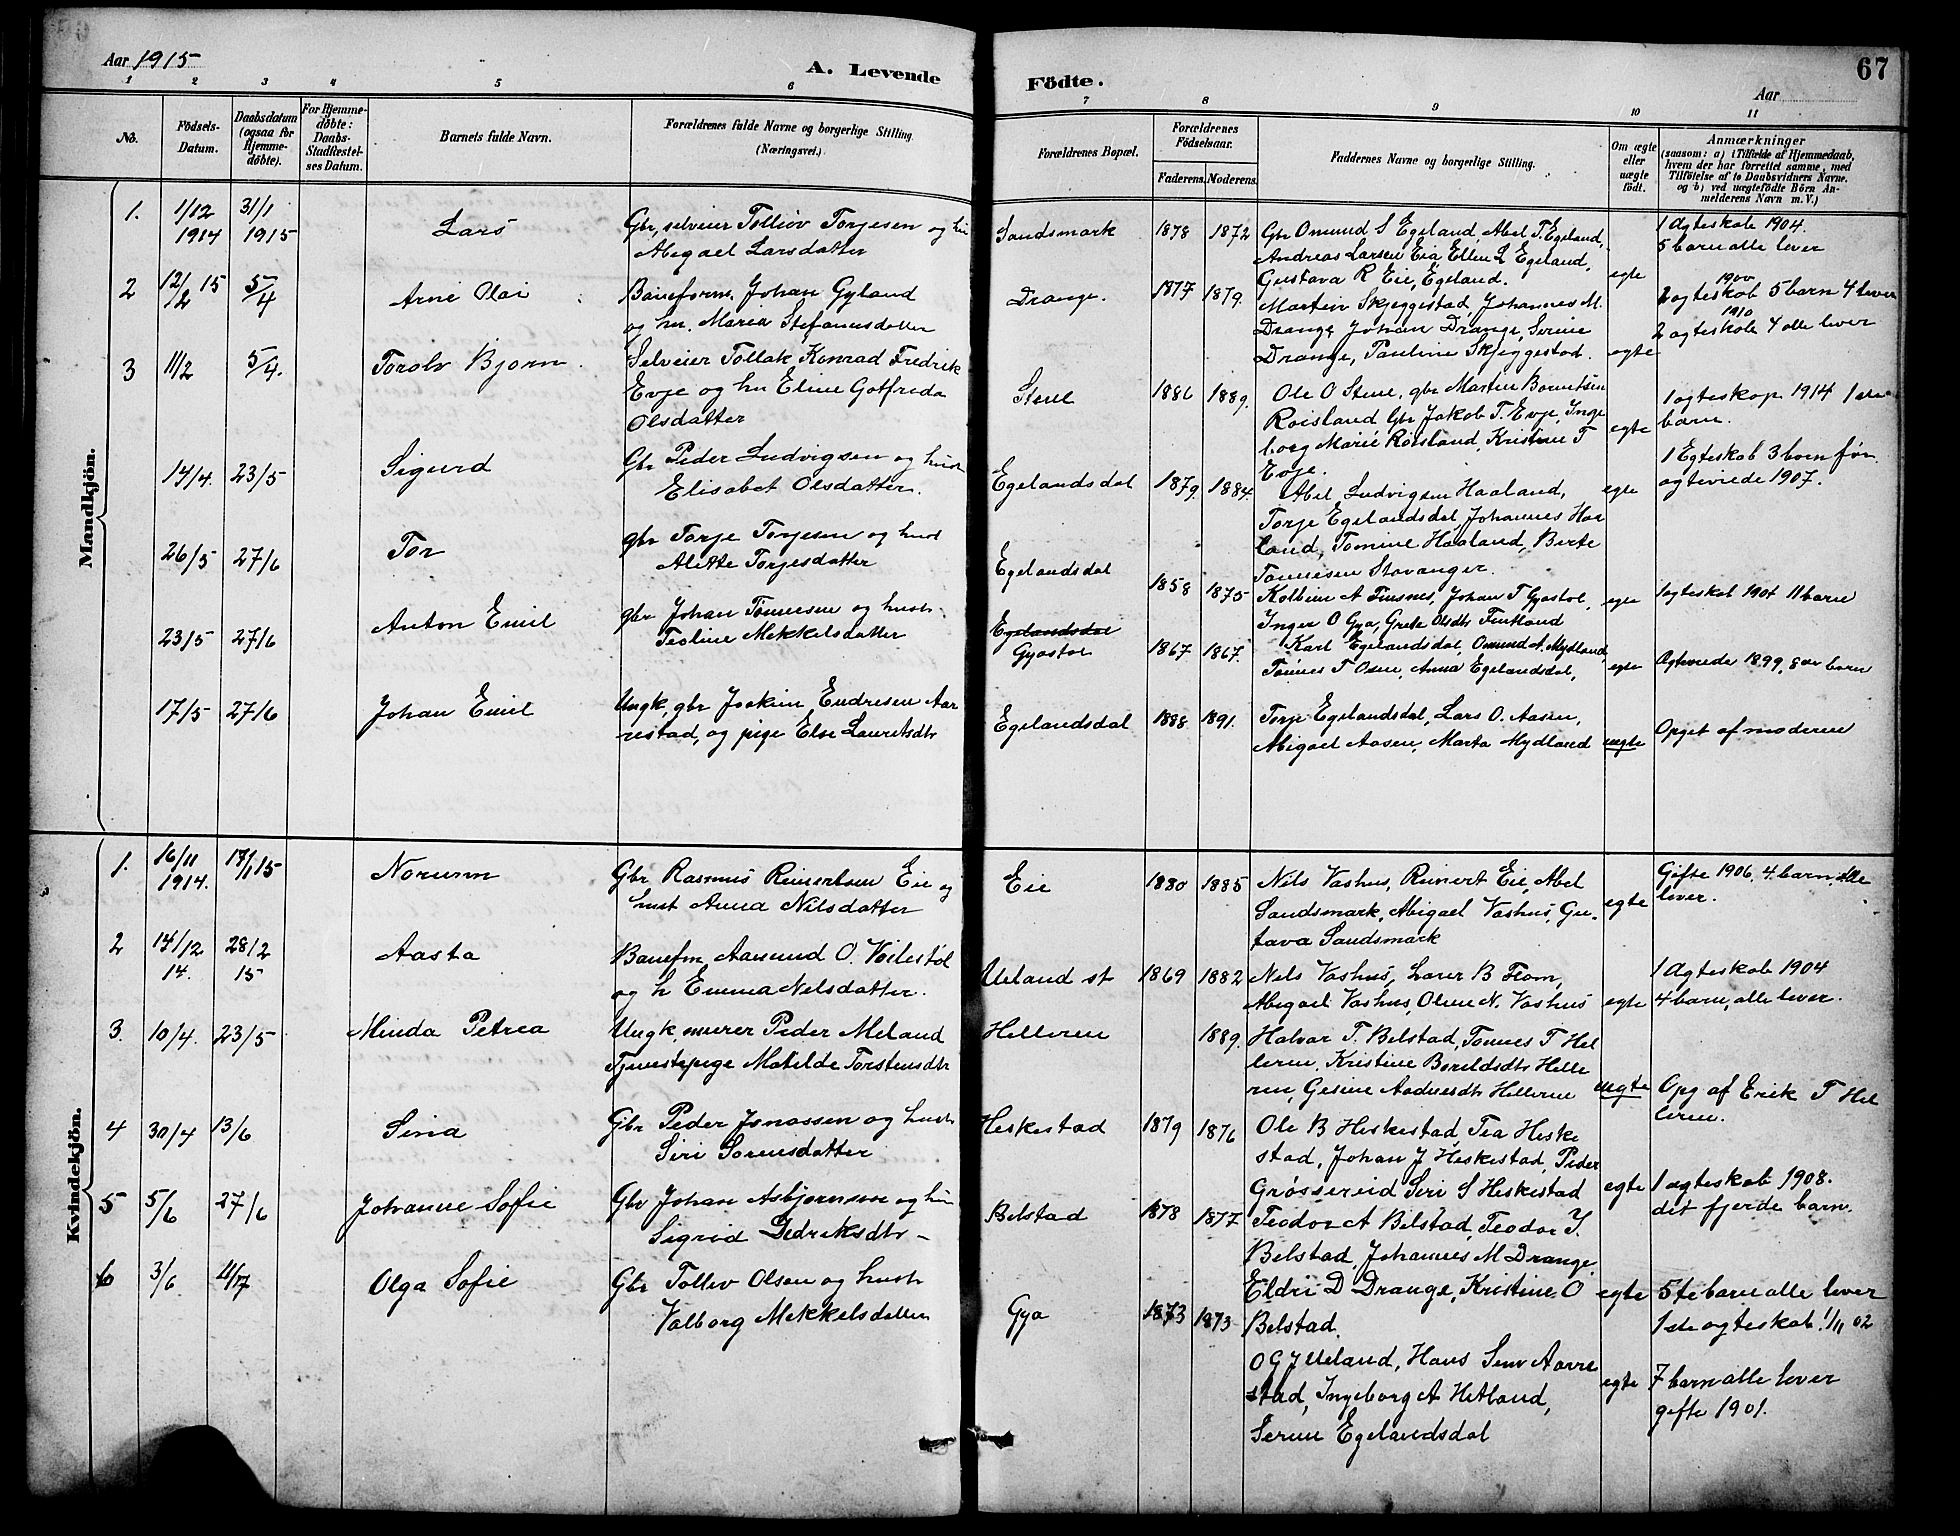 Aar 1915
A. Levende
Födte.
67
Aar
1 2 3 4 5 6 7 8 9 10 11
No.
Födsels-Datum.
Daabsdatum (ogsaa for Hjemme-döbte).
For Hjemme-döbte: Daabs-Stadfæstel-ses Datum.
Barnets fulde Navn.
Forældrenes fulde Navne og borgerlige Stilling. (Næringsvei.)
Forældrenes Bopæl.
Forældrenes Födselsaar.
Faderens. Moderens.
Faddernes Navne og borgerlige Stilling.
Om ægte eller uægte födt.
Anmærkninger
(saasom: a) i Tilfælde af Hjemmedaab, hvem der har forrettet samme, med Tilföielse af to Daabsvidners Navne. og b) ved uægtefödte Börn An-melderens Navn m.V.)
Mandkjön.
1. 1/12 1914 31/1 1915 Lars
Gbr, selveier Tolliov Torjesen og hu
Abigael Larsdatter
Sandsmark 1878 1872
Gbr Omund S Egeland, Abel T. Egeland,
Andreas Larsen Eia, Ellen L Egeland,
Gustava R Eie, Egeland.
egte
1 Agteskab 1904.
5 barn alle lever
2 12/2 15 5/4 Arne Olai
Baneform. Johan Gyland
og hu. Maria Stefanusdatter
Drange. 1877 1879.
Martin Skjeggestad, Johannes M.
Drange, Johan Drange, Serine
Drange, Pauline Skjeggestad.
egte
1900
2 ogteskab 5 barn 4 lever
1910
2 ogteskab 4 alle lever
3 11/2 5/4. Torolv Bjorn
Selveier Tollak Konrad Fredrik
Evje og hu Eline Gotfreda
Olsdatter
Stene 1886 1889.
Ole O Stene, gbr Martin
Roisland Gbr Jakob T. Evje, Inge
borg Marie Röisland, Kristine T
Evje.
egte
1 ogteskap 1914 1ste
barn.
14/4. 23/5 Sigurd
Gbr Peder Ludvigsen og hust
Elisabet Olsdatter.
Egelandsdal 1879 1884.
Abel Ludvigsen Haaland,
Torje Egelandsdal, Johannes Haa
land, Tomine Haaland, Berte
Tonnesen Stavanger.
egte
1 Egteskab 3 born för.
agteviede 1907.
26/5 27/6 Tor
gbr Torje Torjesen og hust
Alette Torjesdatter
Egelandsdal 1858 1875
Kolbine A Finsnes, Johan T Gyastol,
Inger O Gya, Grete Olsdtr Fintland
egte
1 ogteskab 1901 11 barn
23/5 27/6 Anton Emil
gbr Johan Tönnesen og hust.
Teoline Mekkelsdatter
Egelandsdal
Gyastol 1867 1867.
Karl Egelandsdal, Omund A. Mydland,
Tönnes T Osen, Anna Egelandsdal,
egte
Agteviede 1899, 8 barn
17/5 27/6 Johan Emil
Ungk, gbr Joakim Endresen Aar
restad, og pige Else Lauritsdtr
Egelandsdal 1888 1891.
Torje Egelandsdal, Lars O. Aasen,
Abigael Aasen, Marta Mydland
uegte
Opget af moderen
Kvindekjön.
1. 16/11 1914. 17/1 15 Norunn
Gbr Rasmus Reinertsen Eie og
hust Anna Nilsdatter
Eie 1880 1885
Nils Vashus, Reinert Eie, Abel
Sandsmark, Abigael Vashus, Gu-
tava Sandsmark
egte
Gifte 1906. 4. barn, alle
lever.
2 14/12 14. 28/2 15 Aasta
Banefm Aamund O.
og h Emma Nilsdatter.
Ueland st 1869 1882
Nils Vashus, Larer B Flom,
Abigael Vashus, Oline N. Vashus
egte
1 Agteskab 1904
4 barn, alle lever.
3. 10/4. 23/5 Minda Petrea
Ungk, murer Peder Meland
Tjenestepige Matilde Torstensdtr
Helleren 1889.
Halvar T. Belstad, Tönnes T Hel
leren, Kristine Bereldsdtr Helle
ren, Gesine Aadnesdtr Helleren
uegte
Opg af Erik T Hel
leren.
4 30/4 13/6 Sina
Gbr Peder Jonassen og hust
Siri Sorensdatter
Heskestad 1879 1876
Ole B Heskestad, Tea Heske
stad, Johan J Heskestad, Peder
Grössereid Siri S Heskestad
egte
1 ogteskab 1908.
det fjerde barn.
5 5/6 27/6 Johanne Sofie
Gbr Johan Asbjornsen og hu
Sigrid Didriksdtr -
Belstad 1878 1877
Teodor A Belstad, Teodor J.
Belstad, Johannes M Drange
Eldri D Drange, Kristine O
Belstad.
egte
5te barn alle lever
1ste ogteskab 1/11 02
6 3/6. 11/7 Olga Sofie
Gbr Tollev Olsen og hust
Valborg Mekkelsdatter
Gya 1873 1873
O G J Ueland, Hans Aarre
stad, Ingeborg A Hetland,
Serine Egelandsdal
egte
7 barn alle lever
gifte 1901.